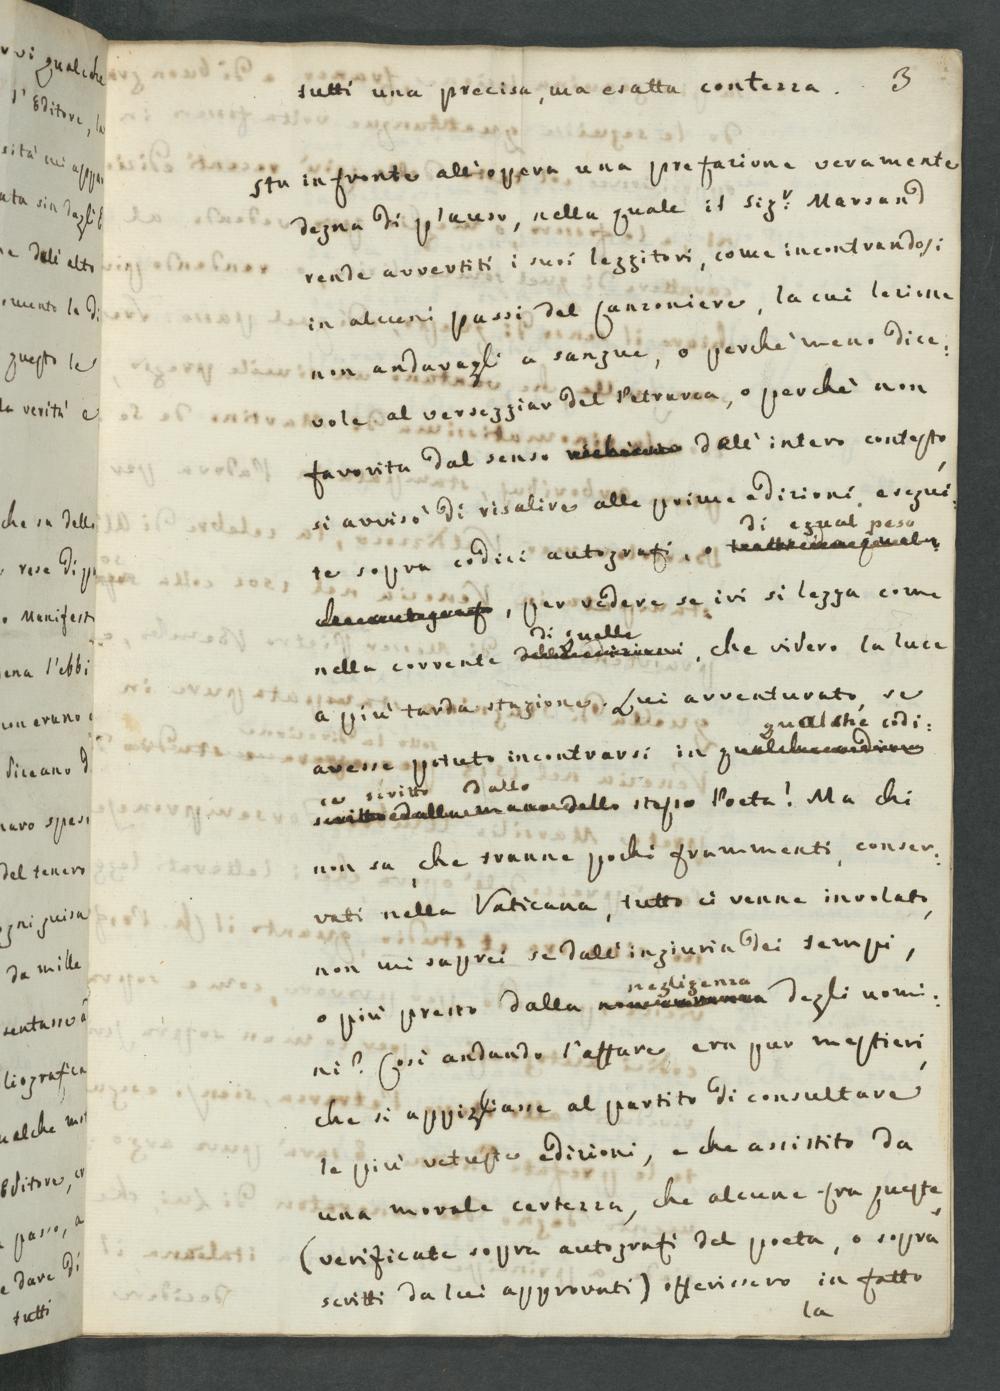 3
tutti una precisa, ma esatta contezza.
Sta in fronte all'opera una prefazione veramente
degna di plauso, nella quale il Sigʳ. Marsand
rende avvertiti i suoi leggitori, come incontrandosi
in alcuni passi del Canzoniere, la cui lezione
non andavagli a sangue, o perchè meno dice:
vole al verseggiar del Petrarca, o perchè non
favorita dal senso dall'intero contesto,
si avvisò di risalire alle prime edizioni, esegui:
di egual peso
te sopra codici autografi, o
, per vedere se ivi si legga come
di quelle
nella corrente delle edizioni, che videro la luce
a più tarda stagione. Lui avventurato, se
qualche codi:
avesse potuto incontrarsi in qualche codice
ce scritto dallo
scritto dalla mano dello stesso Poeta! Ma chi
non sa, che tranne pochi frammenti, conser:
vati nella Vaticana, tutto ci venne involato,
non mi saprei se dall'ingiuria dei tempi,
negligenza
o più presto dalla degli uomi:
ni? Così andando l'affare era pur mestieri,
che si appigliasse al partito di consultare
le più vetuste edizioni, e che assistito da
una morale certezza, che alcune fra queste,
(verificate sopra autografi del poeta, o sopra
scritti da lui approvati) offerissero in fatto
la
vi qualche
l'Editore, la
sità mi
ata sin dagli
ne dall'alto
omento la di
questo le
la verità e
che sa della
rese di
o Manifest
ena l'ebbi
non erano
diceano
del tenero
ogni guisa
da mille
sentasse
liografica
ualche
Editore,
passo, a
e dare di
tutti